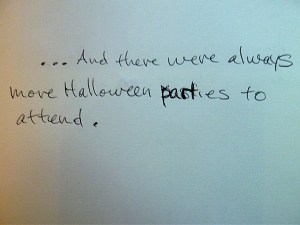 ... And there were always
more Halloween parties to
attend.